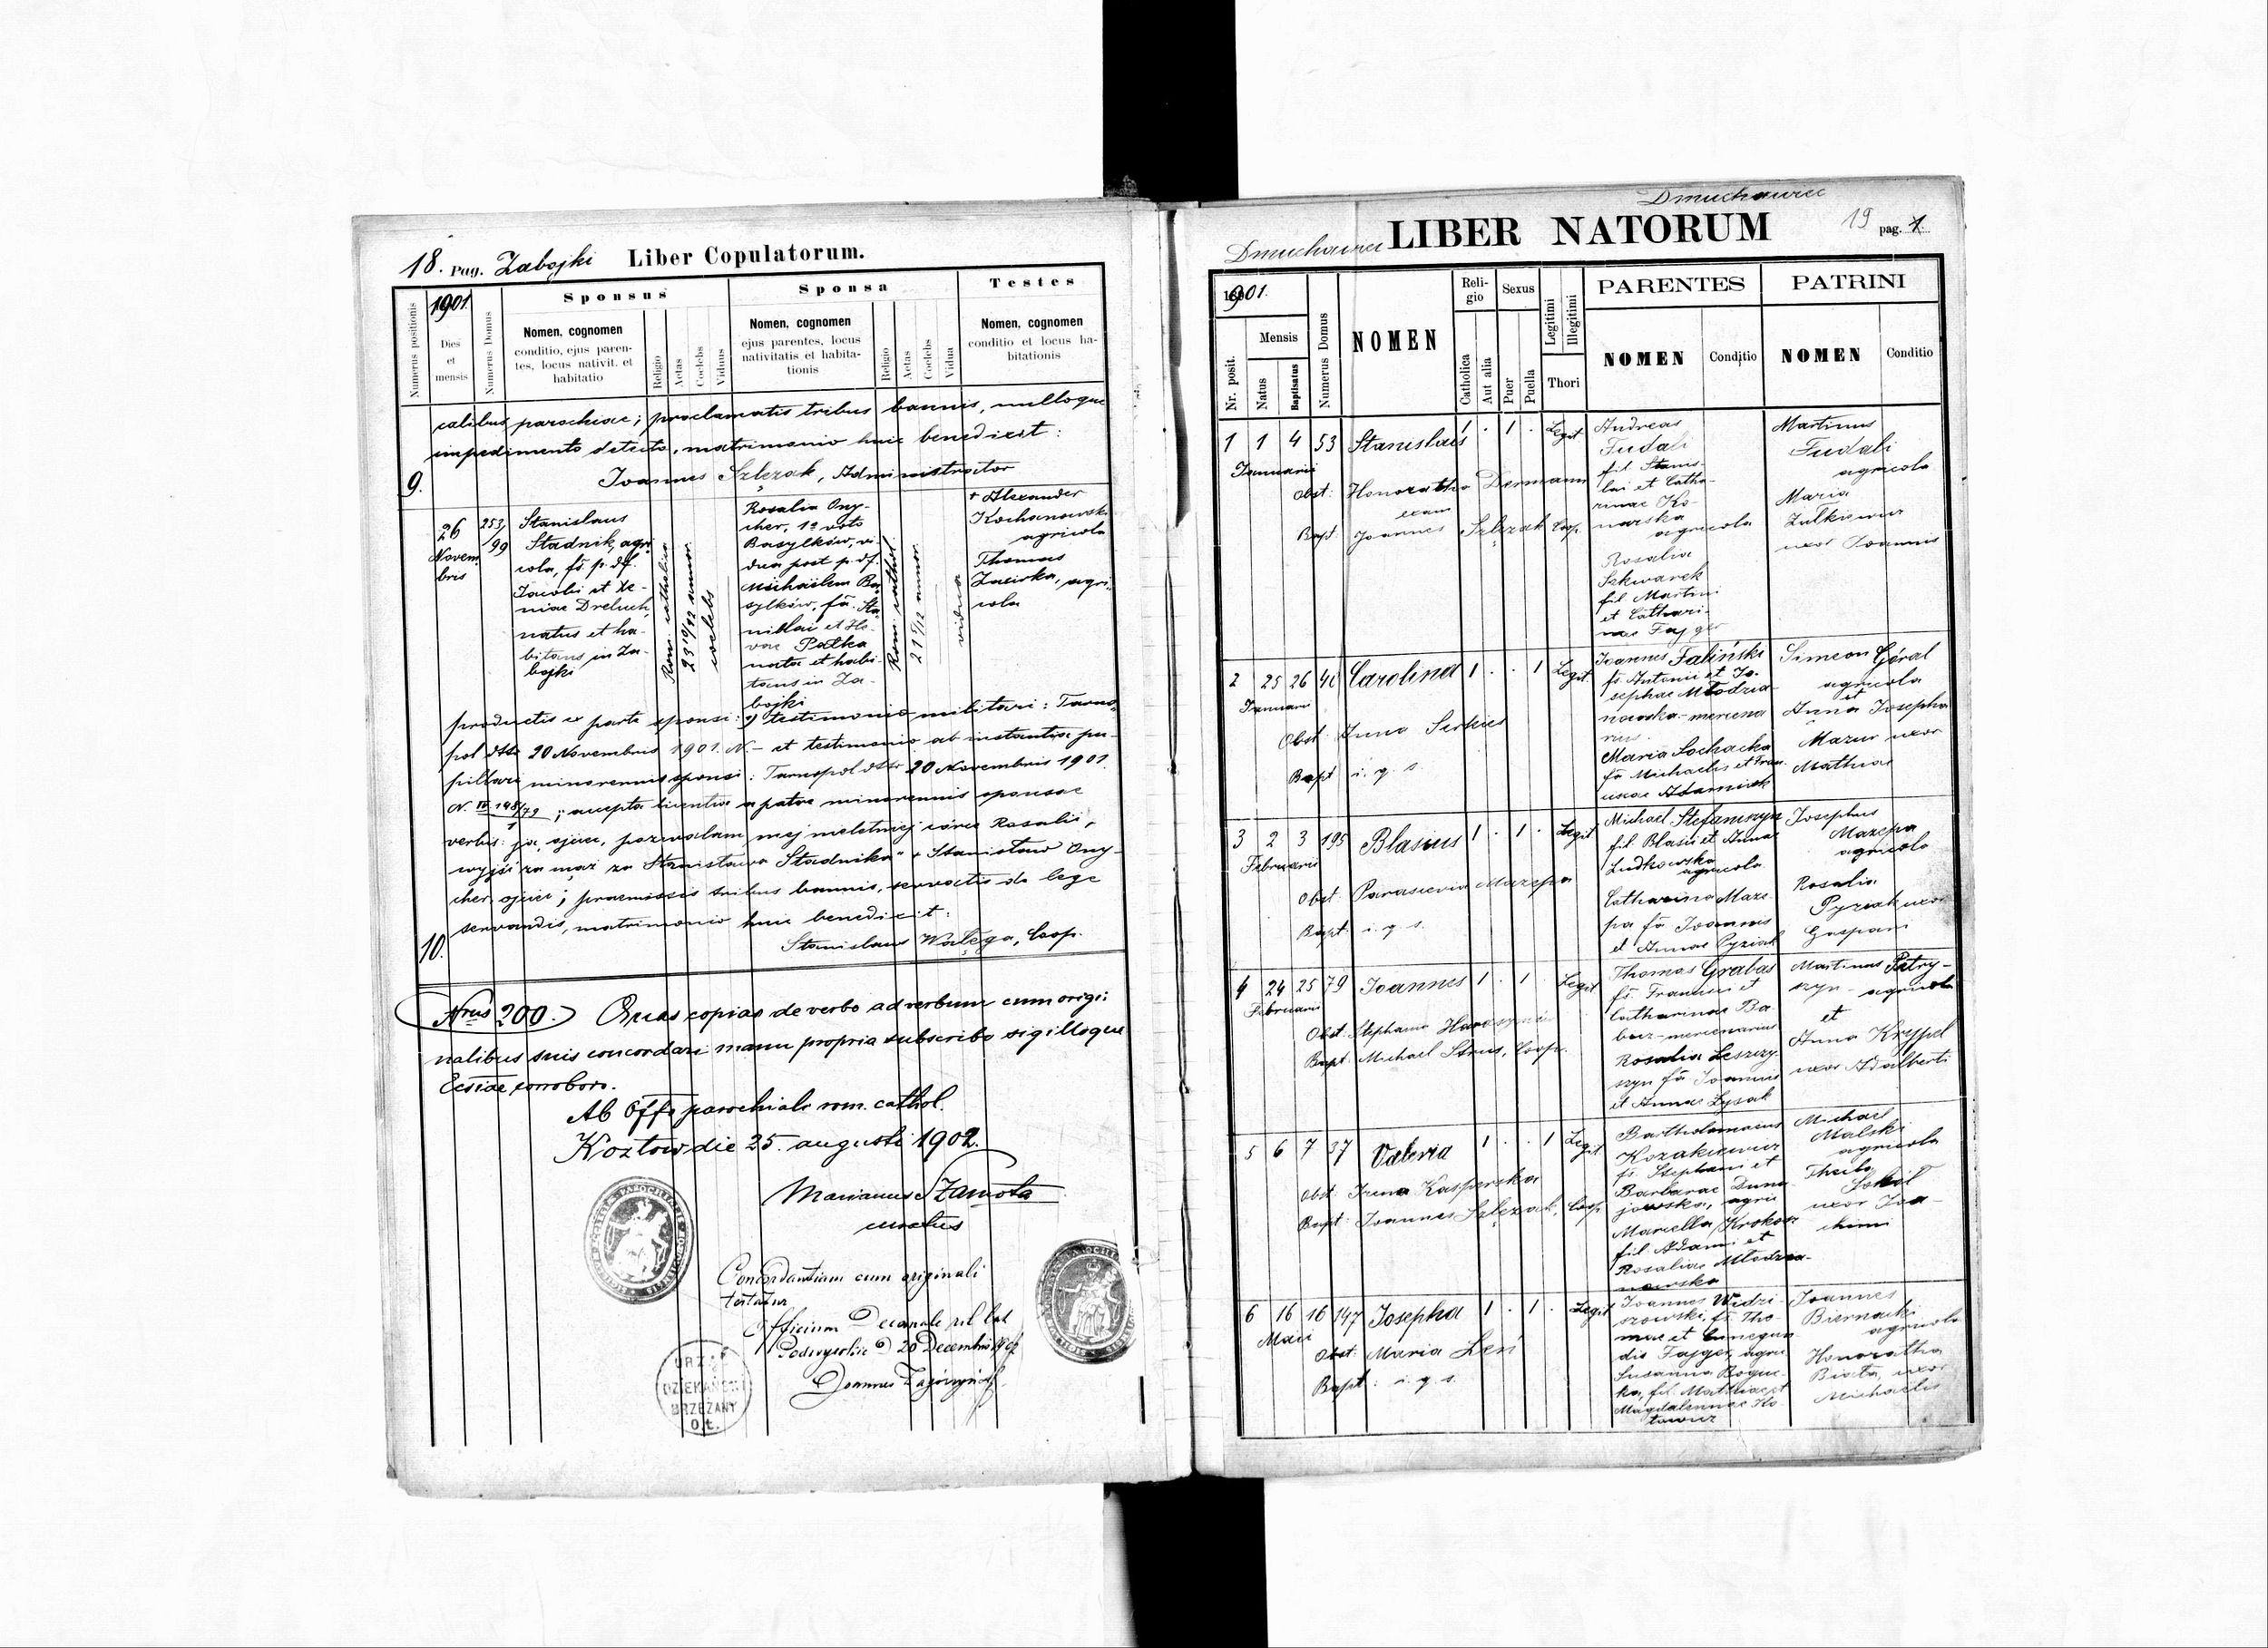 18. Pag. Zabojki Liber Copulatorum.
1901.
Numerus positionis
Dies et mensis
Numerus Domus
Sponsus
Nomen, cognomen
conditio, ejus paren-
tes, locus nativit. et
habitatio
Religio
Aetas
Coelebs
Viduus
Sponsa
Nomen, cognomen
ejus parentes, locus
nativitatis et habita-
tionis
Religio
Aetas
Coelebs
Vidua
Testes
Nomen, cognomen
conditio et locus ha-
bitationis
calibus parochiae; proclamatis tribus bannis, nulloque
impedimento detecto, matrimonio huic benedixit:
9.
Joannes Szlęzak, Administrator
26
Novem
bris
253/
99
Stanislaus
Stadnik, agri
cola, fs. p. df.
Jacobi et Xe-
niae Dreluch,
natus et ha-
bitans in Za-
bojki
Rom. catholica
23 10/12 annor.
coelebs
Rosalia Ony-
cher, 1º voto
Basylków, vi-
dua post p. df.
Michaelem Ba-
sylków, fa. Sta-
nislai et He-
vae Pałka
nata et habi-
tans in Za-
bojki
Rom. cathol.
21 5/12 annor.
vidua
+ Alexander
Kochanowski
agricola
Thomas
Zacirka, agri-
cola
productis ex parte sponsi: a) testimonio militari: Tarno-
pol dtto 20 Novembris 1901. N. – et testimonio ab instantia pu-
pillari minorennis sponsi: Tarnopol dtto 20 Novembris 1901.
N. IV 148/79; accepta licentia a patre minorennis sponsae
1
verbis: ja, ojciec, pozwalam mej nieletniej córce Rosalii,
wyjść za mąż za Stanisława Stadnika" + Stanisław Ony-
cher ojciec; praemissis tribus bannis, servatis de lege
servandis, matrimonio huic benedixit:
10.
Stanislaus Wałęga, Coop.
Nrus 200. Quas copias de verbo ad verbum cum origi-
nalibus suis concordari manu propria subscribo sigilloque
Ecsiae roboro.
Ab Offo parochiale rom. cathol.
Kozłow die 25. augusti 1902.
Marianus Szamota
curatus
Concordantiam cum originali
testatur
Officium Decanale rit. lat.
20 Decembris 1902
Joannes
URZĄD
DZIEKAŃSKI
BRZEŻANY
o. ł.
Dmuchawiec
Dmuchawiec LIBER NATORUM 19 pag. 1
1901.
Nr. posit.
Mensis
Natus
Baptisatus
Numerus Domus
NOMEN
Reli-
gio
Catholica
Aut alia
Sexus
Puer
Puella
Legitimi
Illegitimi
Thori
PARENTES
NOMEN
Conditio
PATRINI
NOMEN
Conditio
1 1 4 53 Stanislaus 1 . 1 . Legit.
Januarii
Obst: Honoratha Dermann
exam
Bapt: Joannes Szlęzak Coop.
Andreas
Fudali
fil. Stanis-
lai et Catha-
rinae Ko-
narska
agricola
Rosalia
Szkwarek
fil. Martini
et Cathari-
nae Fajger
Martinus
Fudali
agricola
Maria
Zulkiewicz
uxor Joannis
2 25 26 40 Carolina 1 . . 1 Legit.
Januarii
Obst: Anna Serkies
Bapt: i. q. s.
Joannes Faliński
fs. Antonii et Jo-
sephae Młodzia-
nowska - mercena
rius
Maria Sochacka
fa Michaelis et Fran-
ciscae Adamiak
Simeon Góral
agricola
et
Anna Josepha
Mazur uxor
Mathiae
3 2 3 195 Blasius 1 . 1 . Legit.
Februarii
Obst: Parascevia Mazepa
Bapt: i. q. s.
Michael Stefaniszyn
fil. Blasii et Annae
Ludkowska
agricola
Catharina Maze-
pa fa Joannis
et Annae Pyziak
Josephus
Mazepa
agricola
Rosalia
Pyziak uxor
Gaspari
4 24 25 79 Joannes 1 . 1 . Legit
Februarii
Obst: Stephania
Bapt: Michael Strus, Coop.
Thomas Grabas
fs. Francisci et
Catharinae Ba-
bicz - mercenarius
Rosalia Leszczy-
szyn fa Joannis
et Annae Łysak
Martinus Petry-
szyn - agricola
et
Anna Kryppel
uxor Adalberti
5 6 7 37 Valeria 1 . . 1 Legit
Obst: Irena Kasparska
Bapt: Joannes Szlęzak, Coop
Bartholomaeus
Kozakiewicz
fs. Stephani et
Barbarae Duna-
jowska, agric
Marcella Krokosz
fil. Adami et
Rosaliae Młodzia-
nowska
Michael
Malski
agricola
Thecla
Sokół
uxor Joa-
chimi
6 16 16 147 Josepha 1 . 1 . Legit
Maii
Obst: Maria Leń
Bapt: i. q. s.
Joannes Widzi-
szowski, fs. Tho-
mae et Cunegun-
dis Fajger, agric
Susanna Bogue-
ka, fil. Matthiae et
Magdalennae Ho-
towicz
Joannes
Biernacki
agricola
Honoratha
Biata, uxor
Michaelis